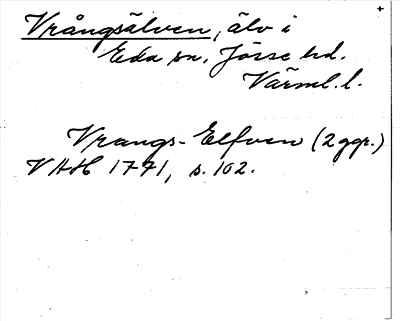 Vrångsälven, älv i
Eda sn. Jösse hd.
Värml. l.
Vrangs-Elfven (2 ggr.)
VAH 1771, s. 102.